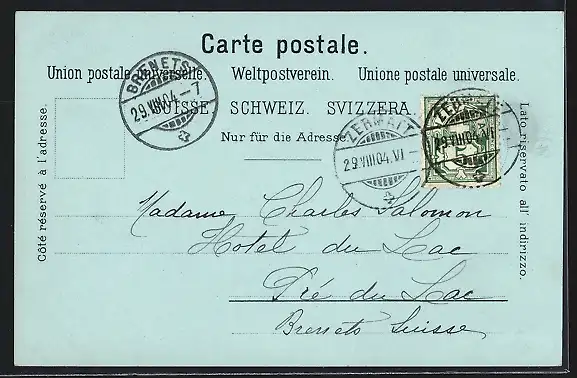 Carte postale.
Union postale universelle. Weltpostverein. Unione postale universale.
SUISSE. SCHWEIZ. SVIZZERA.
Nur für die Adresse.
Côté réservé à l'adresse.
Lato riservato all' indirizzo.
BRENETS
29.VIII.04.-7
ZERMATT
29.VIII.04.VI
ZERMATT
29.VIII.04.VI
Madame Charles Salomon
Hotel du Lac
Pré du Lac
Brenets Suisse